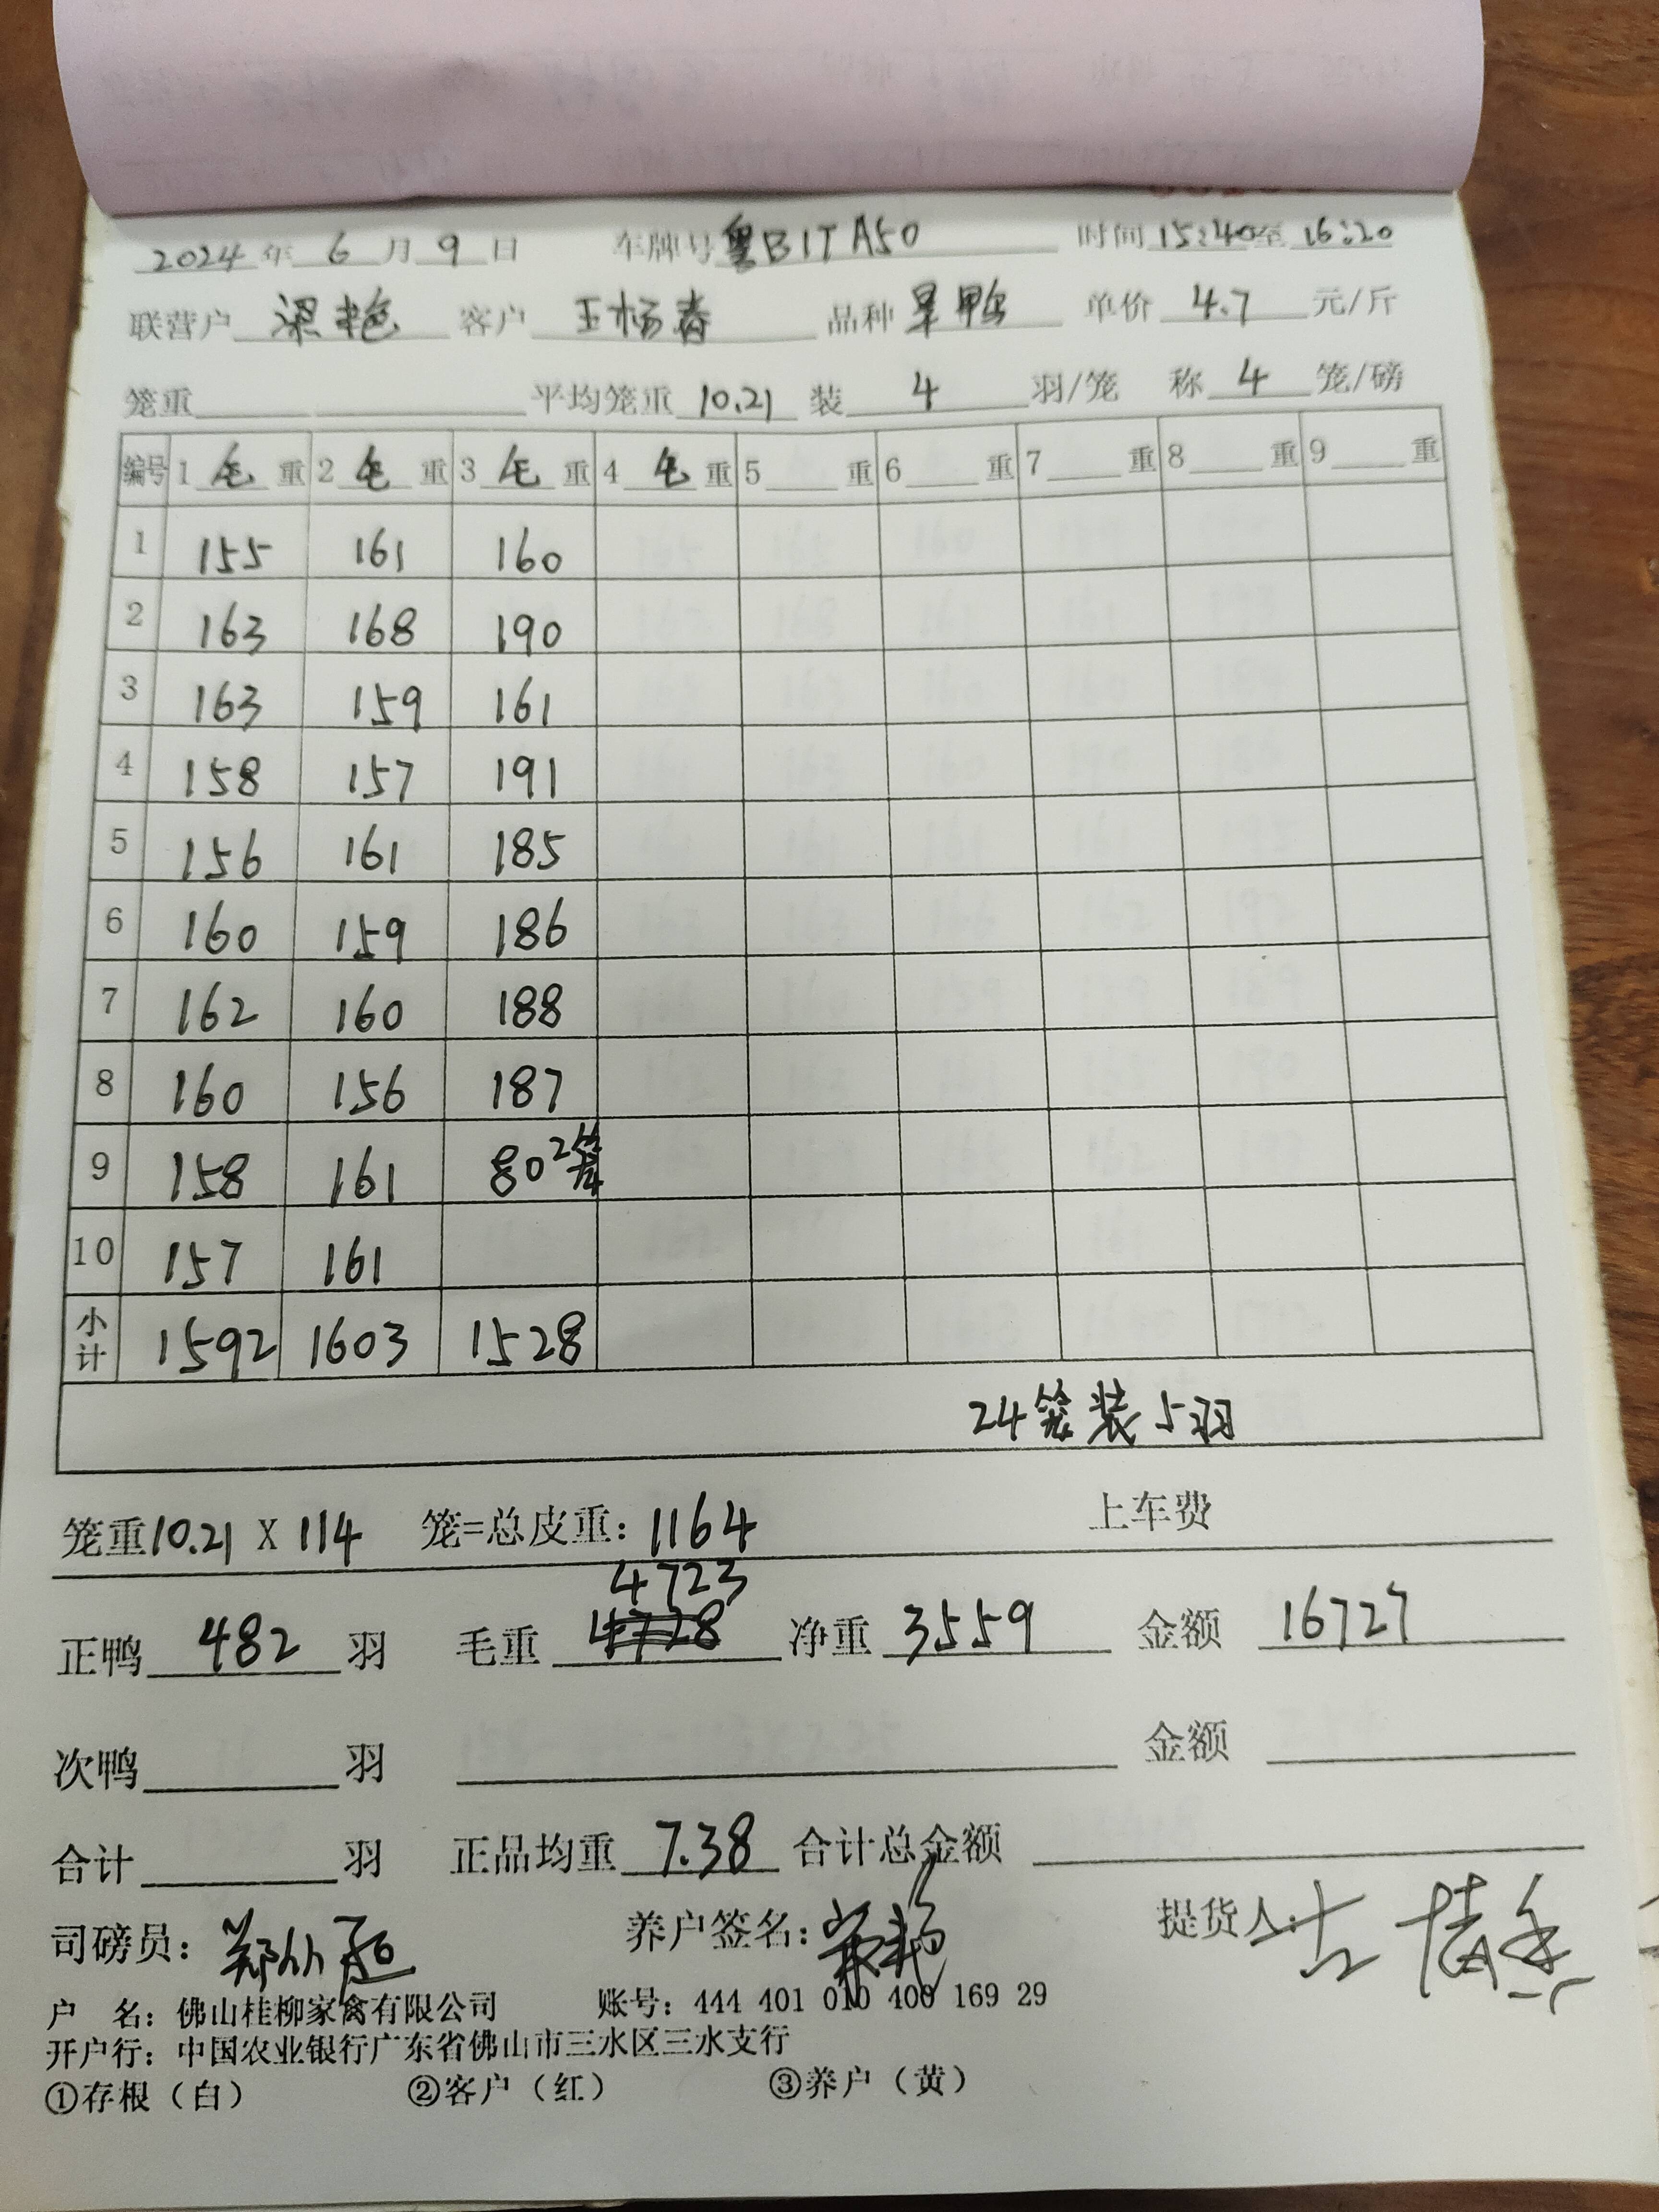 2024 年 6 月 9 日 车牌号 粤B1TA50 时间 15:40 至 16:20
联营户 梁艳 客户 王杨春 品种 旱鸭 单价 4.7 元/斤
笼重 平均笼重 10.21 装 4 羽/笼 称 4 笼/磅
编号 1 毛 重 2 毛 重 3 毛 重 4 毛 重 5 重 6 重 7 重 8 重 9 重
1 155 161 160
2 163 168 190
3 163 159 161
4 158 157 191
5 156 161 185
6 160 159 186
7 162 160 188
8 160 156 187
9 158 161 80 2笼
10 157 161
小计 1592 1603 1528
24笼装5羽
笼重 10.21 X 114 笼=总皮重: 1164 上车费
4723
正鸭 482 羽 毛重 4728 净重 3559 金额 16727
次鸭 羽 金额
合计 羽 正品均重 7.38 合计总金额
司磅员: 养户签名: 提货人:
户 名: 佛山桂柳家禽有限公司 账号: 444 401 010 400 169 29
开户行: 中国农业银行广东省佛山市三水区三水支行
①存根（白） ②客户（红） ③养户（黄）